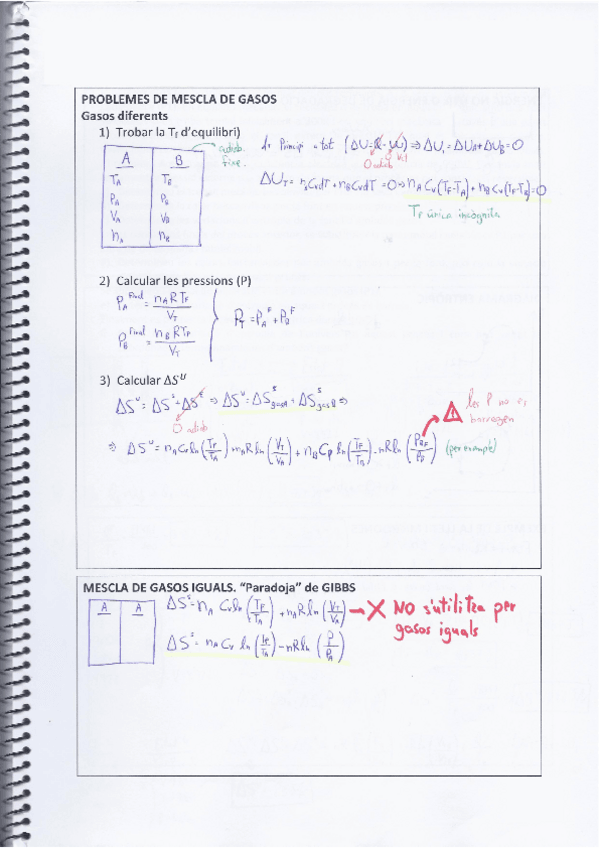 PROBLEMES DE MESCLA DE GASOS
Gasos diferents
1) Trobar la T_f d'equilibri)
A B
T_A T_B
P_A P_B
V_A V_B
n_A n_B
adiab.
fixe.
1r Principi a tot (ΔU=Q-W) ⇒ ΔU_T = ΔU_A+ΔU_B=0
0 adiab 0 V_T
ΔU_T = n_A C_V dT + n_B C_V dT = 0 ⇒ n_A C_V (T_F-T_A) + n_B C_V (T_F-T_B)=0
T_F única incògnita
2) Calcular les pressions (P)
P_A^Final = n_A R T_F / V_T
P_B^Final = n_B R T_F / V_T
P_T = P_A^F + P_B^F
3) Calcular ΔS^U
ΔS^U = ΔS^S + ΔS^E ⇒ ΔS^U = ΔS^S_gas A + ΔS^S_gas B ⇒
0 adiab
les P no es
barregen
⇒ ΔS^U = n_A C_V ln (T_F/T_A) + n_A R ln (V_T/V_A) + n_B C_P ln (T_F/T_B) - nR ln (P_BF/P_B) (per exemple)
MESCLA DE GASOS IGUALS. "Paradoja" de GIBBS
A A
ΔS^S = n_A C_V ln (T_F/T_A) + n_A R ln (V_T/V_A) → X NO s'utilitza per
gasos iguals
ΔS^S = n_A C_V ln (T_F/T_A) - nR ln (P/P_A)